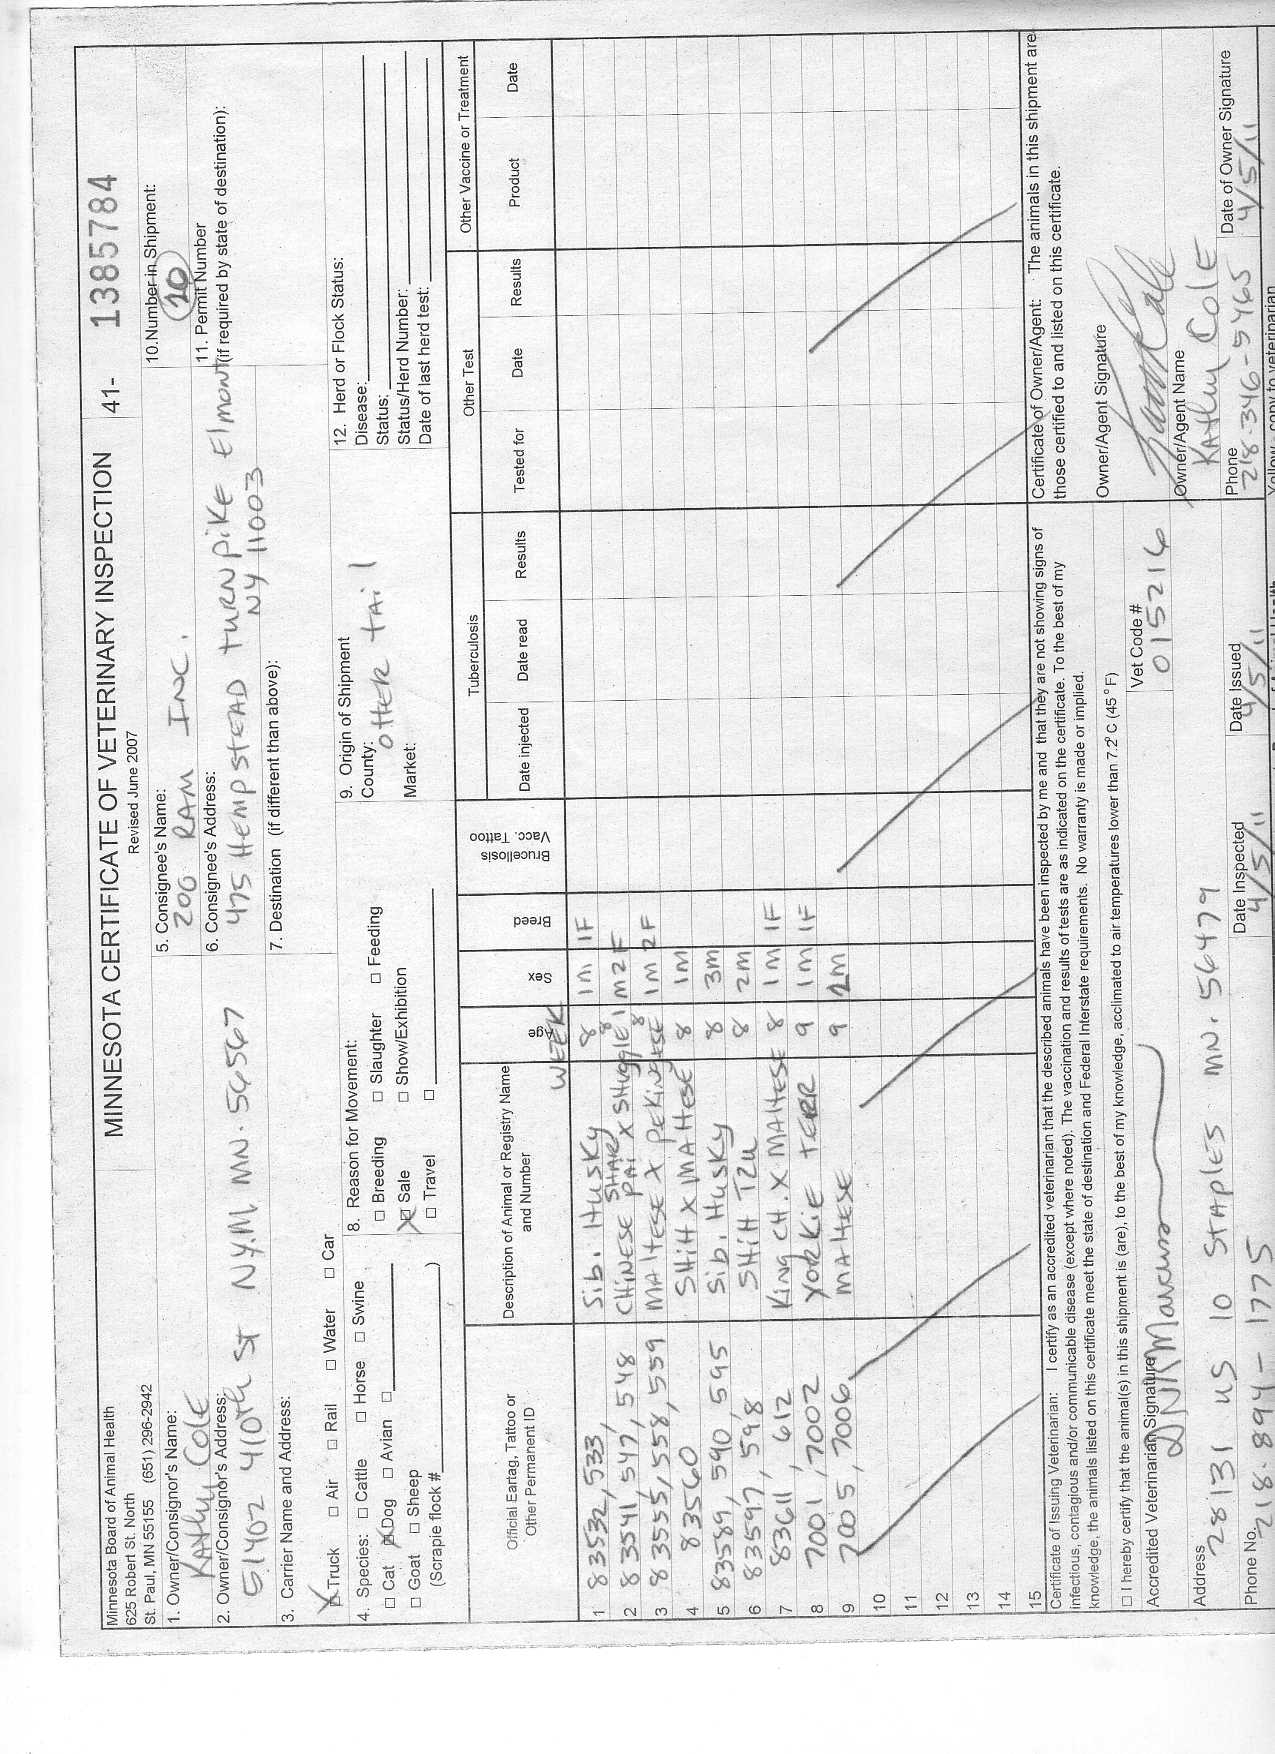 MINNESOTA CERTIFICATE OF VETERINARY INSPECTION 41- 1385784
Revised June 2007
Minnesota Board of Animal Health
625 Robert St. North
St. Paul, MN 55155 (651) 296-2942
1. Owner/Consignor's Name:
KATHY COLE
2. Owner/Consignor's Address:
51402 410th ST N.Y.M MN. 56567
3. Carrier Name and Address:
Truck □ Air □ Rail □ Water □ Car
5. Consignee's Name:
200 RAM INC.
6. Consignee's Address:
475 HEMPSTEAD TURNPIKE Elmont
NY 11003
7. Destination (if different than above):
10. Number in Shipment:
20
11. Permit Number
(if required by state of destination):
4. Species: □ Cattle □ Horse □ Swine
□ Cat Dog □ Avian □
□ Goat □ Sheep
(Scrapie flock # )
8. Reason for Movement:
□ Breeding □ Slaughter □ Feeding
Sale □ Show/Exhibition
□ Travel □
9. Origin of Shipment
County:
OTTER TAIL
Market:
12. Herd or Flock Status:
Disease:
Status:
Status/Herd Number:
Date of last herd test:
Official Eartag, Tattoo or
Other Permanent ID
Description of Animal or Registry Name
and Number
Age
WEEK
Sex
Breed
Brucellosis
Vacc. Tattoo
Tuberculosis
Date injected Date read Results
Other Test
Tested for Date Results
Other Vaccine or Treatment
Product Date
1 83532, 533 Sib. HUSKY 8 1M 1F
2 83541, 547, 548 CHINESE SHAR PAI X SHUggle 8 1M 2F
3 83555, 558, 559 MALTESE X PEKINGESE 8 1M 2F
4 83560 SHiH X MALTESE 8 1M
5 83589, 590 595 Sib. HUSKY 8 3M
6 83597, 598 SHIH TZU 8 2M
7 83611, 612 KING CH. X MALTESE 8 1M 1F
8 7001, 7002 YORKIE TERR 9 1M 1F
9 7005, 7006 MALTESE 9 2M
10
11
12
13
14
15
Certificate of Issuing Veterinarian: I certify as an accredited veterinarian that the described animals have been inspected by me and that they are not showing signs of
infectious, contagious and/or communicable disease (except where noted). The vaccination and results of tests are as indicated on the certificate. To the best of my
knowledge, the animals listed on this certificate meet the state of destination and Federal Interstate requirements. No warranty is made or implied.
□ I hereby certify that the animal(s) in this shipment is (are), to the best of my knowledge, acclimated to air temperatures lower than 7.2° C (45° F)
Accredited Veterinarian Signature
Vet Code #
015216
Address
28131 US 10 STAPLES MN. 56479
Phone No.
218-894-1775
Date Inspected
4/5/11
Date Issued
4/5/11
Certificate of Owner/Agent: The animals in this shipment are
those certified to and listed on this certificate.
Owner/Agent Signature
Owner/Agent Name
KATHY COLE
Phone
218-346-5465
Date of Owner Signature
4/5/11
Yellow - copy to veterinarian